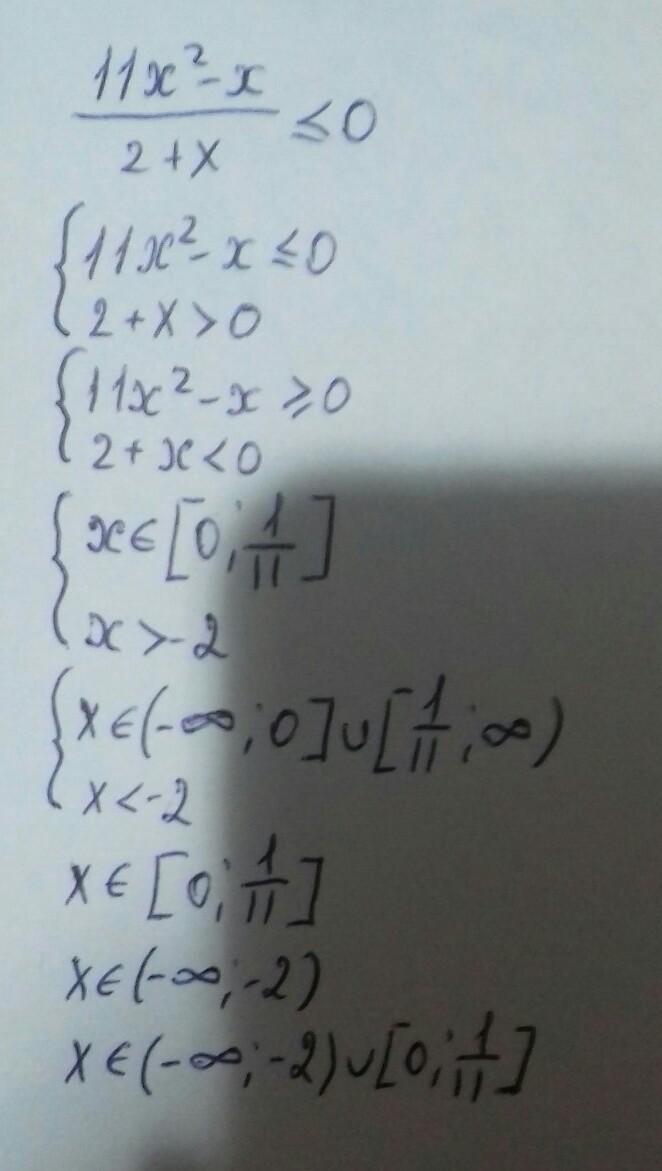 11x² - x
———
2 + x ≤ 0
{ 11x² - x ≤ 0
2 + x > 0
{ 11x² - x ≥ 0
2 + x < 0
{ x ∈ [0; 1/11]
x > -2
{ x ∈ (-∞; 0] ∪ [1/11; ∞)
x < -2
x ∈ [0; 1/11]
x ∈ (-∞; -2)
x ∈ (-∞; -2) ∪ [0; 1/11]